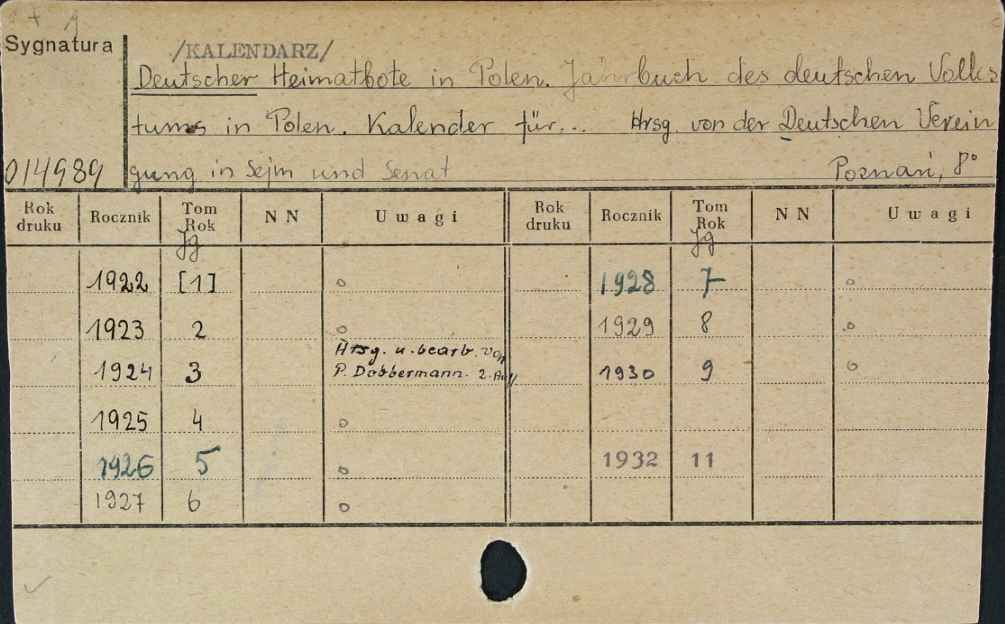 Sygnatura
/KALENDARZ/
Deutscher Heimatbote in Polen. Jahrbuch des deutschen Volks
tums in Polen. Kalender für... Hrsg. von der Deutschen Verein
014989 gung in Sejm und Senat Poznań, 8°
Rok druku Rocznik Tom Rok NN Uwagi Rok druku Rocznik Tom Rok NN Uwagi
Jg Jg
1922 [1] o 1928 7 o
1923 2 o 1929 8 o
Hrsg. u. bearb. von
1924 3 P. Dobbermann. 2. Aufl 1930 9 o
1925 4 o
1926 5 o 1932 11
1927 6 o